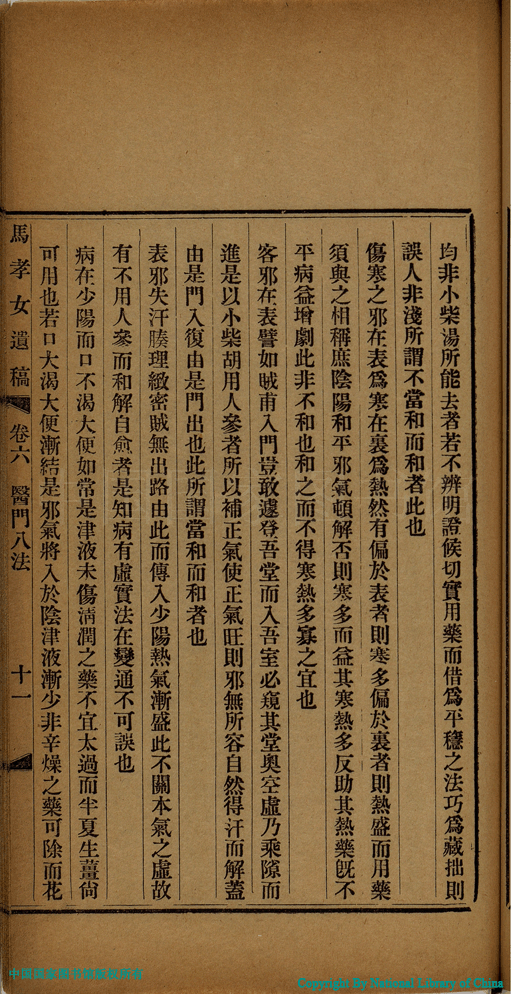 均非小柴湯所能去者若不辨明證候切實用藥而借爲平穩之法巧爲藏拙則
誤人非淺所謂不當和而和者此也
傷寒之邪在表爲寒在裏爲熱然有偏於表者則寒多偏於裏者則熱盛而用藥
須與之相稱庶陰陽和平邪氣頓解否則寒多而益其寒熱多反助其熱藥旣不
平病益增劇此非不和也和之而不得寒熱多寡之宜也
客邪在表譬如賊甫入門豈敢遽登吾堂而入吾室必窺其堂奧空虛乃乘隙而
進是以小柴胡用人參者所以補正氣使正氣旺則邪無所容自然得汗而解蓋
由是門入復由是門出也此所謂當和而和者也
表邪失汗腠理緻密賊無出路由此而傳入少陽熱氣漸盛此不關本氣之虛故
有不用人參而和解自愈者是知病有虛實法在變通不可誤也
病在少陽而口不渴大便如常是津液未傷淸潤之藥不宜太過而半夏生薑尙
可用也若口大渴大便漸結是邪氣將入於陰津液漸少非辛燥之藥可除而花
馬孝女遺稿 卷六 醫門八法 十一
中国国家图书馆版权所有
Copyright By National Library of China